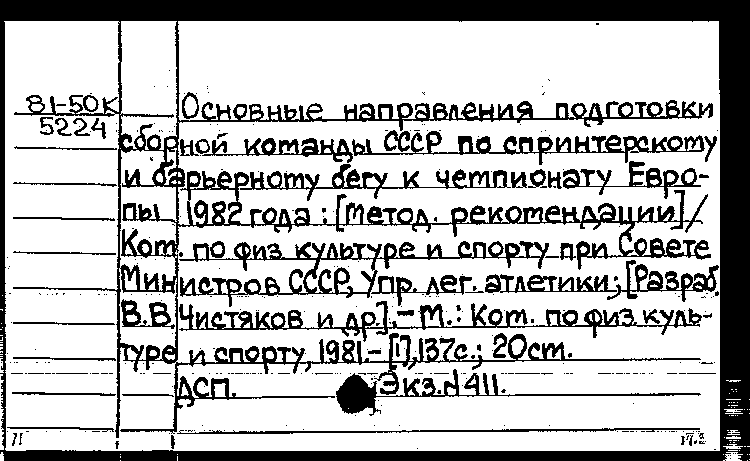 81-50К Основные направления подготовки
5224 сборной команды СССР по спринтерскому
и барьерному бегу к чемпионату Евро-
пы 1982 года : [Метод. рекомендации] /
Ком. по физ культуре и спорту при Совете
Министров СССР, Упр. лег. атлетики; [Разраб.
В.В. Чистяков и др.]. – М. : Ком. по физ. куль-
туре и спорту, 1981. – [1], 137с. ; 20см.
ДСП. Экз. № 411.